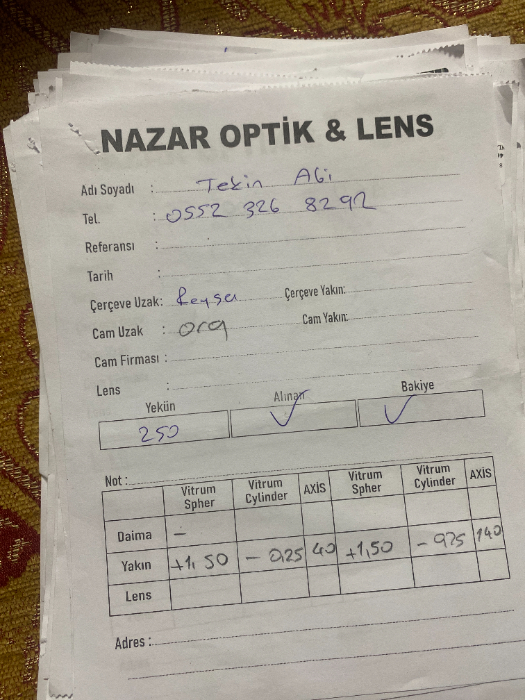 NAZAR OPTİK & LENS
Adı Soyadı : Tekin Abi
Tel. : 0552 326 8292
Referansı :
Tarih :
Çerçeve Uzak: Reysa Çerçeve Yakın:
Cam Uzak : org Cam Yakın:
Cam Firması :
Lens :
Yekün Alınan Bakiye
250 ✓ ✓
Not :
Vitrum Spher Vitrum Cylinder AXİS Vitrum Spher Vitrum Cylinder AXİS
Daima —
Yakın +1,50 - 0,25 40 +1,50 - 0,25 140
Lens
Adres :